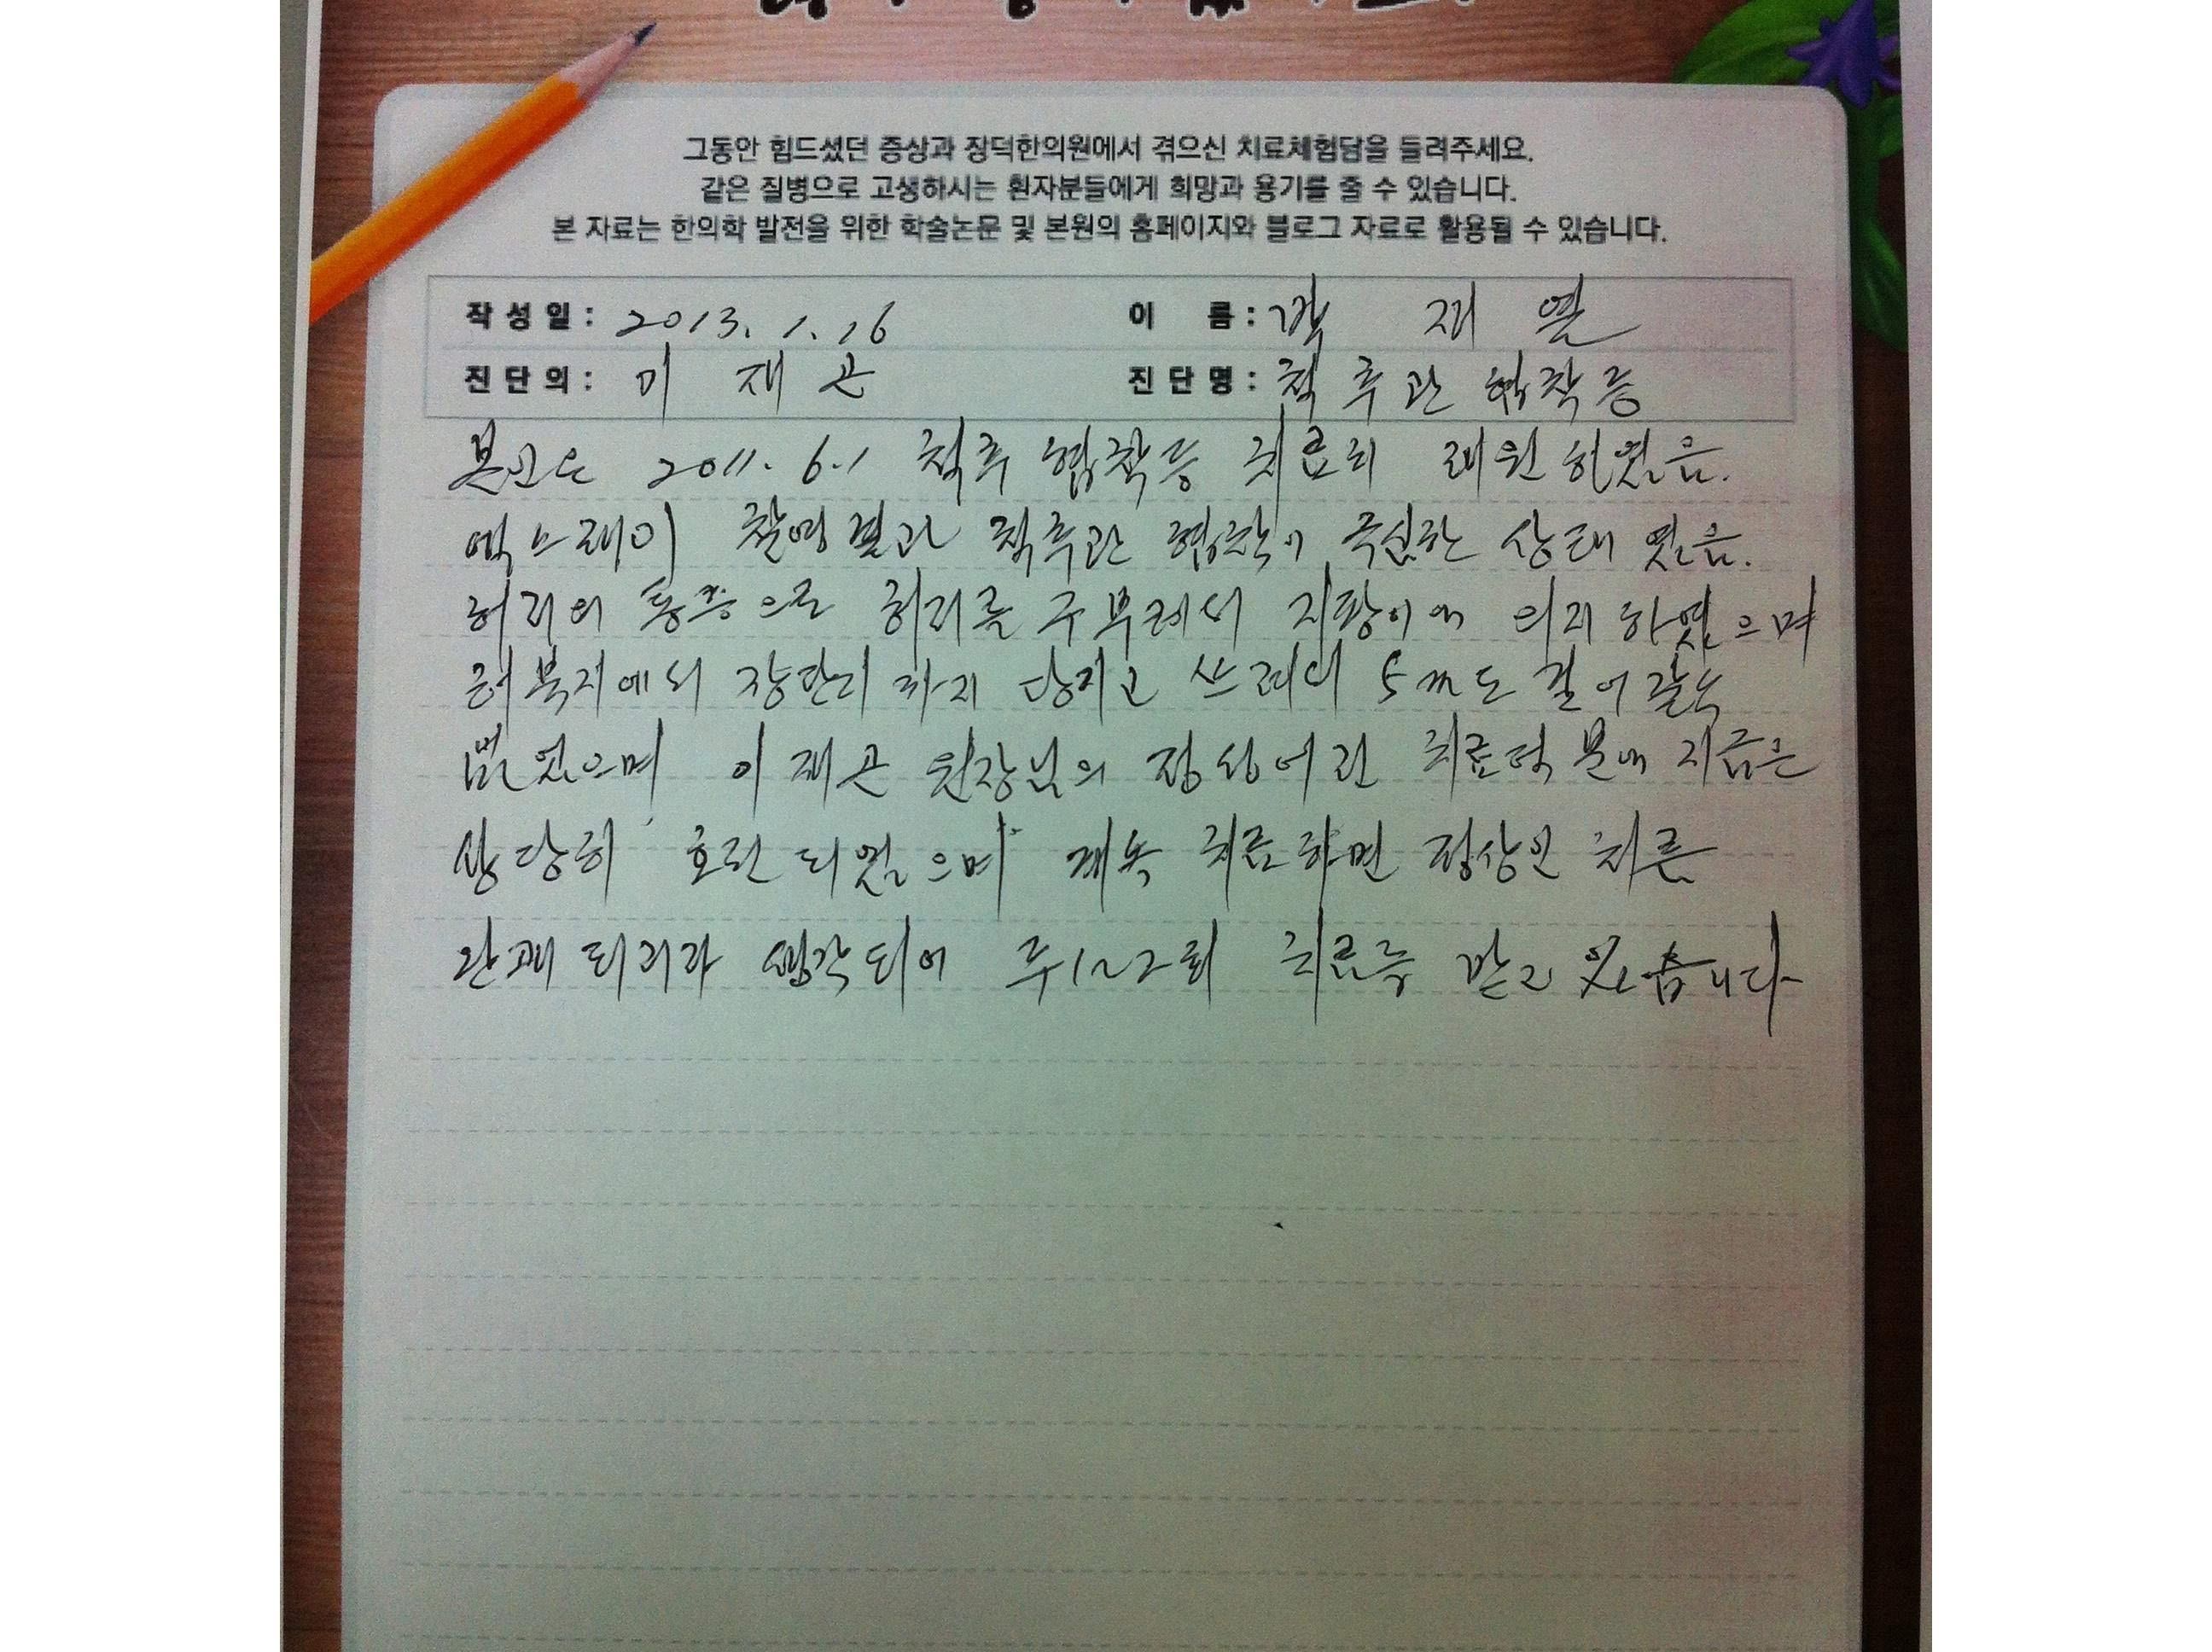 그동안 힘드셨던 증상과 장덕한의원에서 겪으신 치료체험담을 들려주세요.
같은 질병으로 고생하시는 환자분들에게 희망과 용기를 줄 수 있습니다.
본 자료는 한의학 발전을 위한 학술논문 및 본원의 홈페이지와 블로그 자료로 활용될 수 있습니다.
작성일: 2013. 1. 16 이 름: 박 재 열
진단의: 이 재 곤 진단명: 척추관 협착증
본인은 2011. 6.1 척추 협착증 치료차 래원 하였음.
엑스레이 촬영결과 척추관 협착이 극심한 상태 였음.
허리의 통증으로 허리를 구부려서 지팡이에 의지 하였으며
허벅지에서 장단지 까지 당기고 쓰려서 5m도 걸어갈수
없었으며 이재곤 원장님의 정성어린 치료덕분에 지금은
상당히 호전 되었으며 계속 치료하면 정상인 처름
완쾌 되리라 생각되어 주1~2회 치료를 받고 있습니다